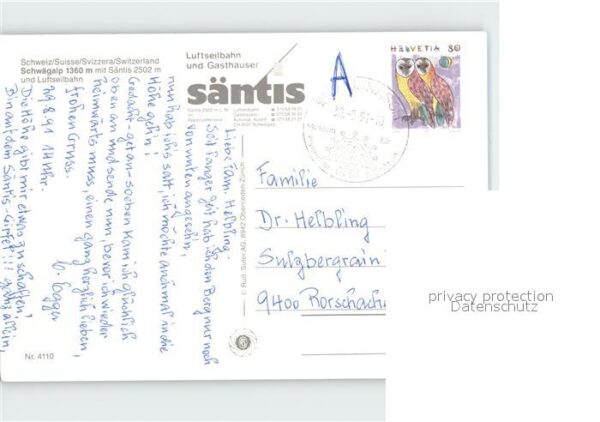 Schweiz/Suisse/Svizzera/Switzerland
Schwägalp 1360 m mit Säntis 2502 m
und Luftseilbahn
Luftseilbahn
und Gasthäuser
säntis
A
HELVETIA 80
Liebe Fam. Helbling.
Seit langer Zeit hab ich den Berg nur noch
von unten angesehn,
nun hab ich's satt, ich möchte auch mal in die
Höhe gehn!
Gedacht - getan - soeben kam ich glücklich
oben an und sende nun, bevor ich wieder
heimwärts muss, einen ganz herzlich lieben,
frohen Gruss.
29.8.91 11 Uhr.
Die Höhe gibt mir etwas zu schaffen!
Bin auf dem Säntis-Gipfel!!! ganz allein,
© Rud. Suter AG, 8942 Oberrieden-Zürich
Familie
Dr. Helbling
Sulzbergrain
9400 Rorschach
Nr. 4110
privacy protection
Datenschutz